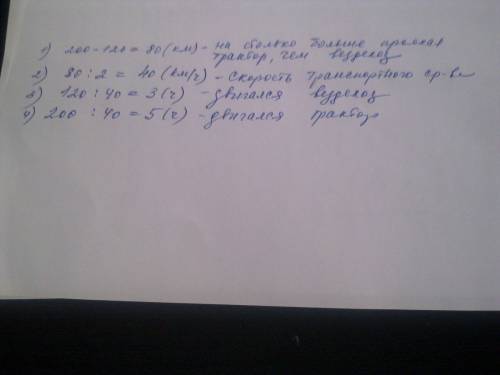 1) 200-120 = 80 (км) - на сколько больше проехал
трактор, чем вездеход
2) 80 : 2 = 40 (км/ч) - скорость транспортного ср-ва
3) 120 : 40 = 3 (ч) - двигался вездеход
4) 200 : 40 = 5 (ч) - двигался трактор